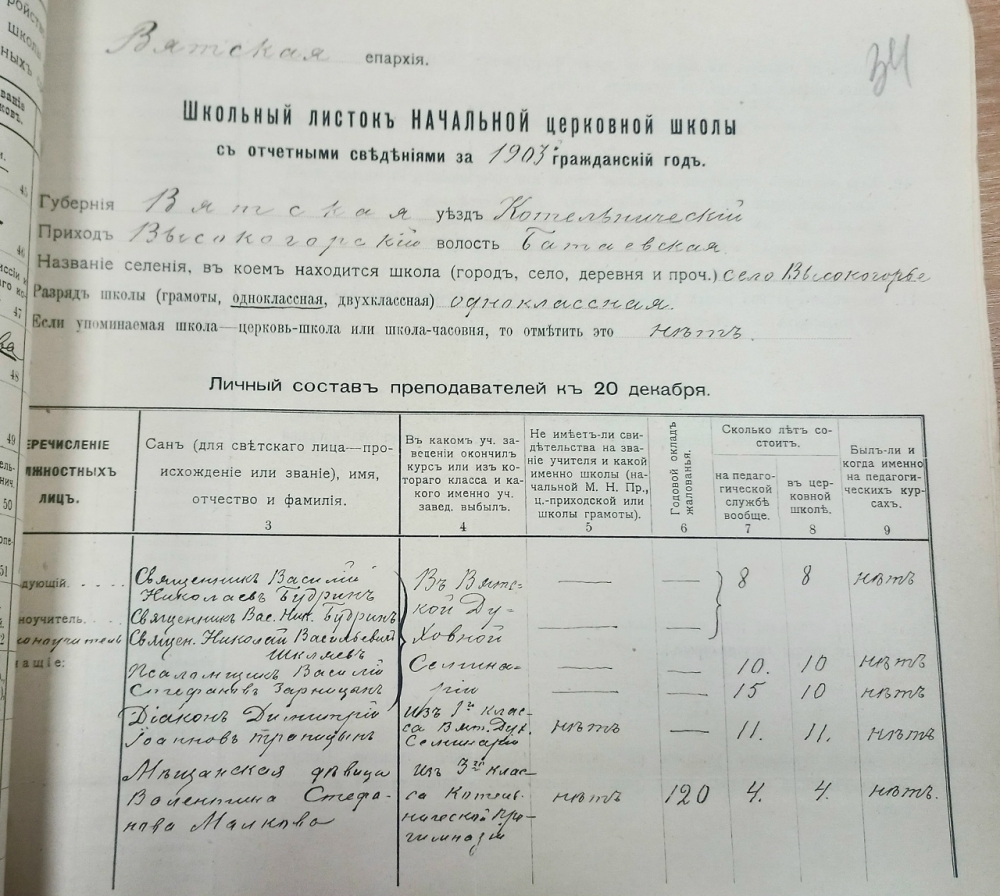 Вятская епархія.
34
Школьный листокъ НАЧАЛЬНОЙ церковной школы
съ отчетными свѣдѣніями за 1903 гражданскій годъ.
Губернія Вятская уѣздъ Котельническій
Приходъ Высокогорскій волость Батаевская
Названіе селенія, въ коемъ находится школа (городъ, село, деревня и проч.) село Высокогорье
Разрядъ школы (грамоты, одноклассная, двухклассная) одноклассная.
Если упоминаемая школа—церковь-школа или школа-часовня, то отмѣтить это нѣтъ.
Личный составъ преподавателей къ 20 декабря.
ЕРЕЧИСЛЕНІЕ
ЛЖНОСТНЫХЪ
ЛИЦЪ.
Санъ (для свѣтскаго лица—про-
исхожденіе или званіе), имя,
отчество и фамилія.
3
Въ какомъ уч. за-
веденіи окончилъ
курсъ или изъ ко-
тораго класса и ка-
кого именно уч.
завед. выбылъ.
4
Не имѣетъ-ли сви-
дѣтельства на зва-
ніе учителя и какой
именно школы (на-
чальной М. Н. Пр.,
ц.-приходской или
школы грамоты).
5
Годовой окладъ
жалованья.
6
Сколько лѣтъ со-
стоитъ.
на педаго-
гической
службѣ
вообще.
7
въ цер-
ковной
школѣ.
8
Былъ-ли и
когда именно
на педагоги-
ческихъ кур-
сахъ.
9
дующій.
ноучитель.
конoучитель
ащіе:
Священникъ Василій
Николаевъ Будринъ
Священникъ Вас. Ник. Будринъ
Священ. Николай Васильевъ
Шкляевъ
Псаломщикъ Василій
Стефановъ Зарницынъ
Въ Вятс-
кой Ду-
ховной
Семина-
ріи
— — 8 8 нѣтъ
— —
— — 10. 10 нѣтъ
— — 15 10 нѣтъ
Діаконъ Димитрій
Іоанновъ Трапицынъ
изъ 1го клас-
са Вят. Дух.
Семинаріи
нѣтъ — 11. 11. нѣтъ
Мѣщанская дѣвица
Валентина Стефа-
нова Малкова
изъ 3го клас-
са Котель-
нической про-
гимназіи
нѣтъ 120 4. 4. нѣтъ.